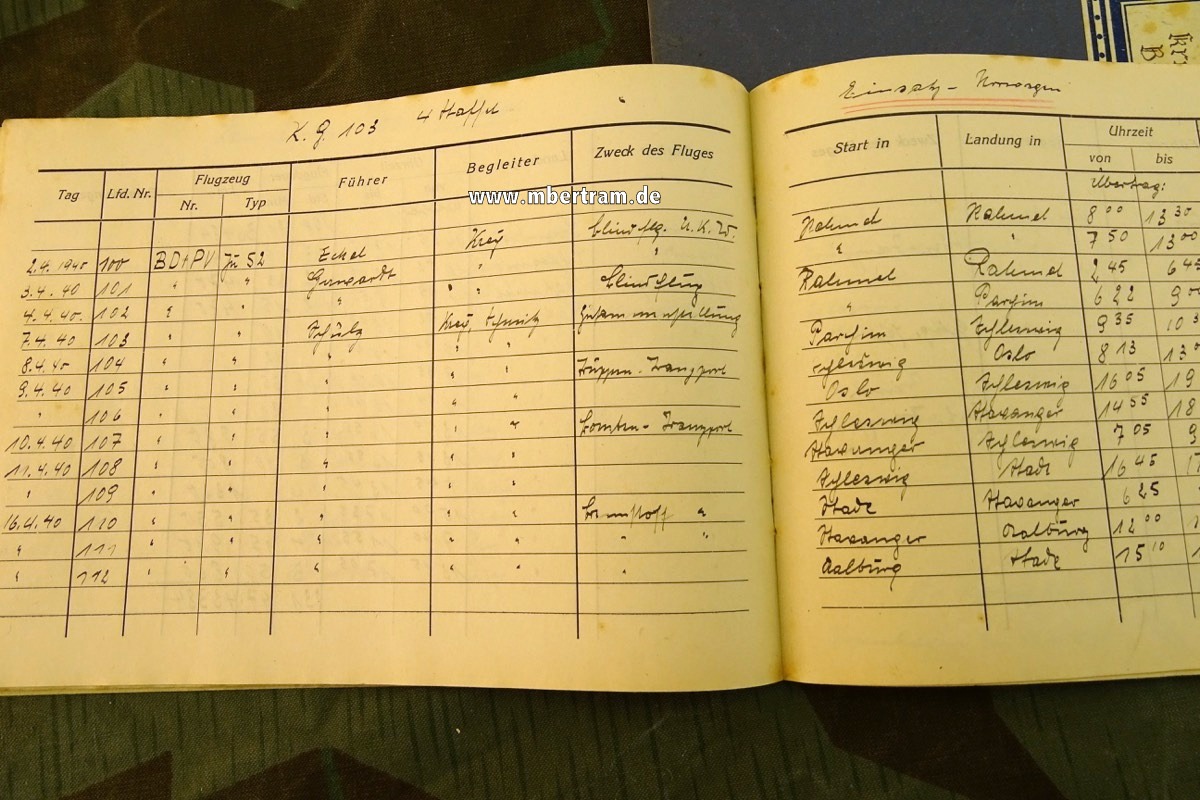 K.G. 103 4 Staffel
Tag Lfd. Nr. Flugzeug Führer Begleiter Zweck des Fluges
Nr. Typ
Blindflg. U.K.W.
2.4.1940 100 BD+PV Ju 52 Eckel Krey "
3.4.40 101 " " " " Blindflug
4.4.40. 102 " " "
7.4.40 103 " " Schülz Krey
8.4.40 104 " " " " "
9.4.40 105 " " " " " Trüppen-Transport
" 106 " " " " "
10.4.40 107 " " " " " Bomben-Transport
11.4.40 108 " " " " "
" 109 " " " " "
16.4.40 110 " " " " " Brennstoff "
" 111 " " " " " " "
" 112 " " " " " "
www.mbertram.de
Einsatz - Norwegen
Start in Landung in Uhrzeit
von bis
Übertrag:
Rahmel Rahmel 8 00 13 30
" " 7 50 13 00
Rahmel Rahmel 2 45 6 45
" Parchim 6 22 9 00
Parchim Schleswig 9 35 10 3
Schleswig Oslo 8 13 13 0
Oslo Schleswig 16 05 19
Schleswig Stavanger 14 55 18
Stavanger Schleswig 7 05 9
Schleswig Stade 16 45 17
Stade Stavanger 6 25
Stavanger Aalburg 12 00 1
Aalburg Stade 15 10 1